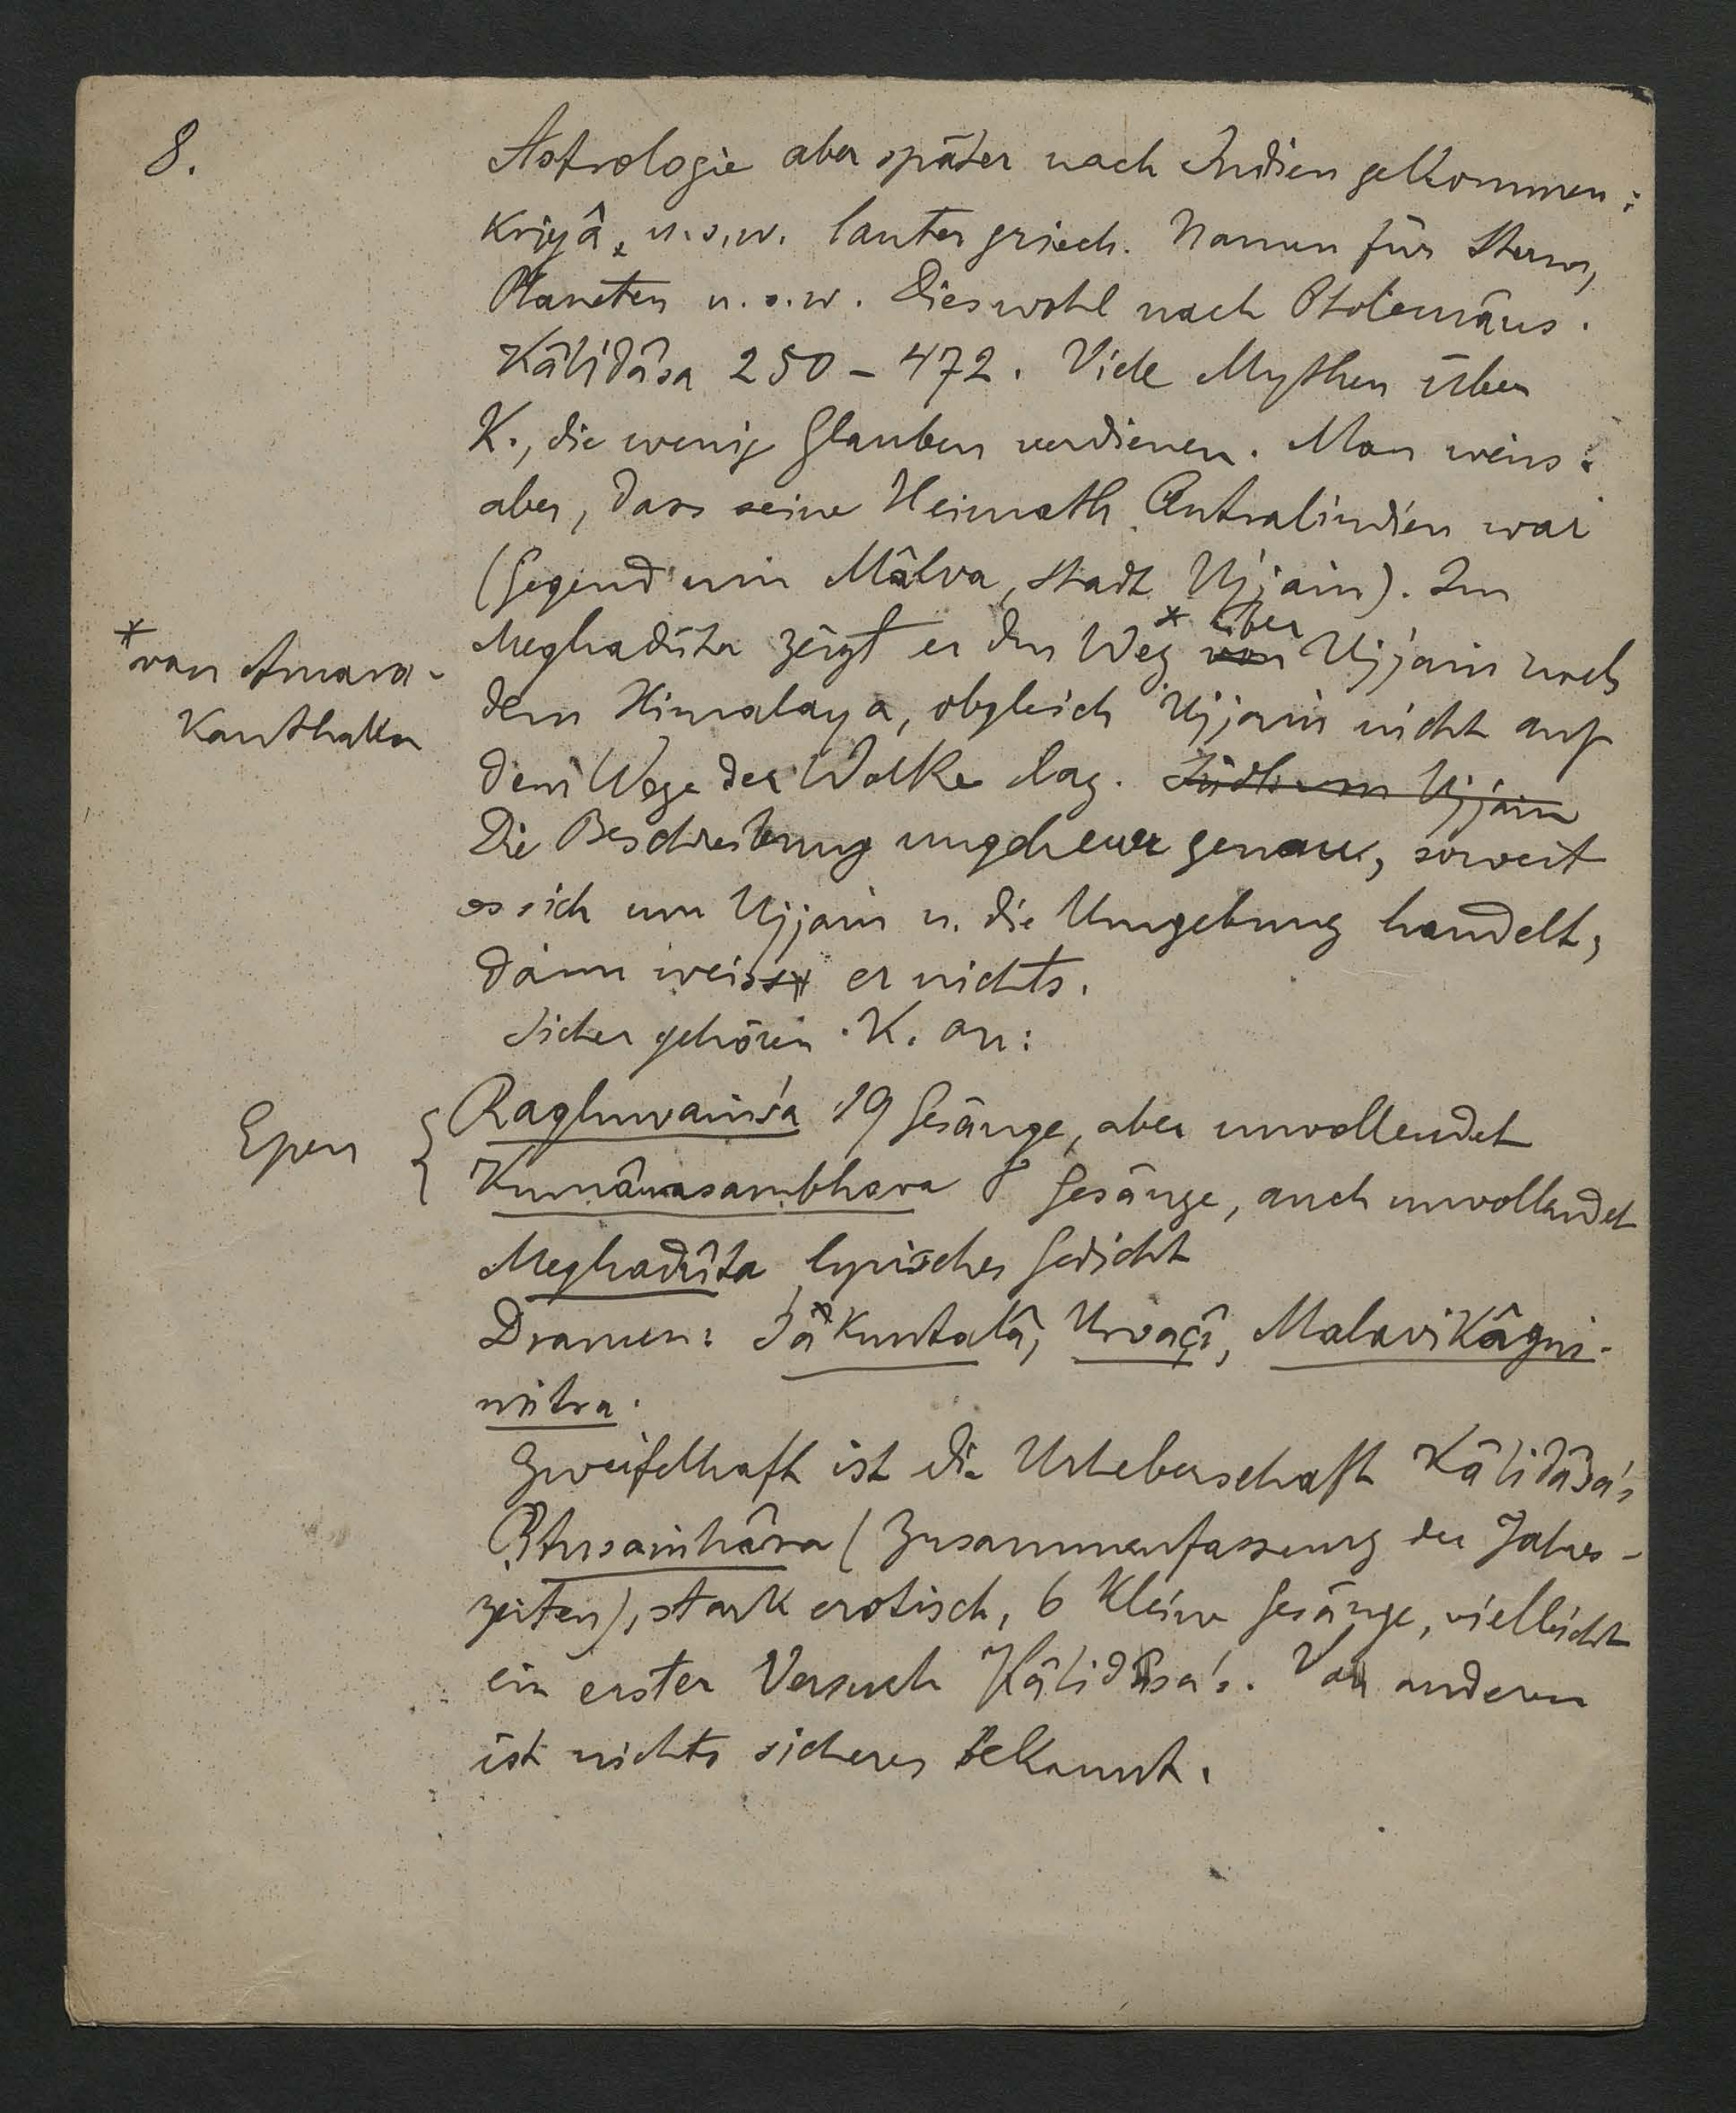 8.
Astrologie aber später nach Indien gekommen:
kriyâ, u.s.w. lauter griech. Namen für Sterne,
Planeten u.s.w. Dies wohl nach Ptolemäus.
Kâlidâsa 250 – 472. Viele Mythen über
K., die wenig Glauben verdienen. Man weiss
aber, dass seine Heimath Centralindien war
(Gegend um Mâlva, Stadt Ujjain). Im
Meghadûta zeigt er den Weg * von über Ujjain nach
* von Amara-
kanthaka
dem Himalaya, obgleich Ujjain nicht auf
dem Wege der Wolke lag. Ujjain
Die Beschreibung ungeheuer genau, soweit
es sich um Ujjain u. die Umgebung handelt,
dann weiss er nichts.
Sicher gehören K. an:
Epen { Raghuvaṁśa 19 Gesänge, aber unvollendet
Kumârasambhava 8 Gesänge, auch unvollendet
Meghadûta lyrisches Gedicht
Dramen: Śâkuntalâ, Urvaçî, Malavikâgni-
mitra.
Zweifelhaft ist die Urheberschaft Kâlidâsa's
Ṛtusaṁhâra (Zusammenfassung der Jahres-
zeiten), stark erotisch, 6 kleine Gesänge, vielleicht
ein erster Versuch Kâlidâsa's. Von anderen
ist nichts sicheres bekannt.